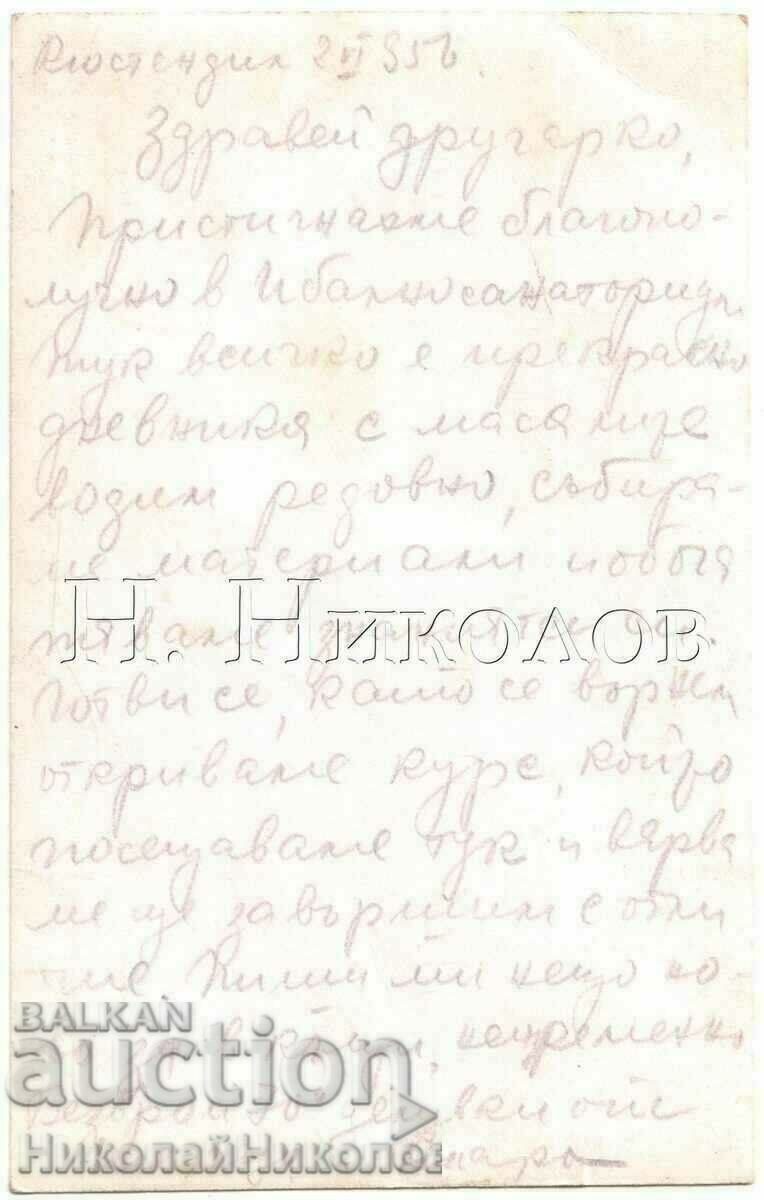 Кюстендил 2 VI 956
Здравей другарко,
Пристигнахме благопо-
лучно в балносанаториума.
Тук всичко е прекрасно
дневника с масата
водим редовно, събира-
ме материали и обога
тяваме
Готви се, като се върнем
откриваме курс, който
посещаваме тук и вярва
ме ще завършим с отли
чие. Пиши ми нещо но-
непременно
от
Н. Николов
BALKAN
auction
НиколайНиколов